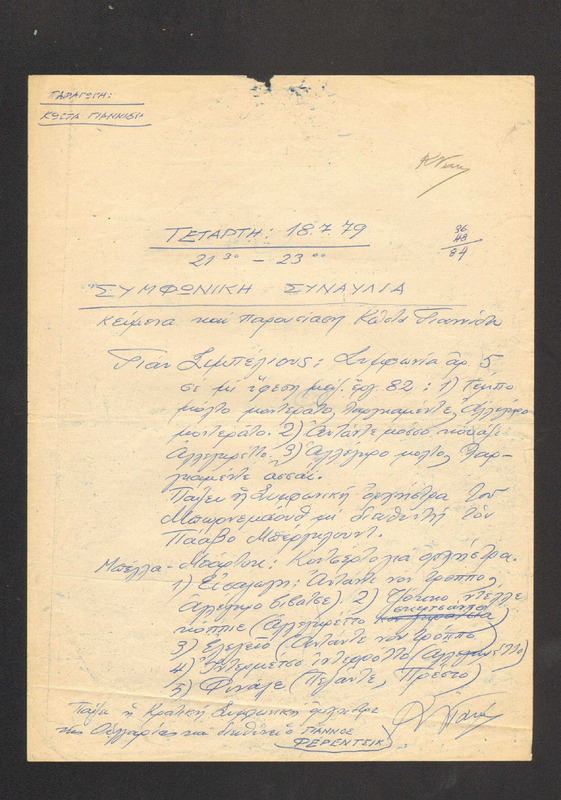 ΠΑΡΑΓΩΓΗ:
ΚΩΣΤΑ ΓΙΑΝΝΙΔΗ
ΤΕΤΑΡΤΗ: 18.7.79
36
48
84
21³⁰ – 23⁰⁰
"ΣΥΜΦΩΝΙΚΗ ΣΥΝΑΥΛΙΑ
Κείμενα καί παρουσίαση Κώστα Γιαννίδη
Γιάν Σιμπέλιους: Συμφωνία άρ. 5
σέ μί ὕφεση μαζ. ἔργ. 82: 1) Τέμπο
μόλτο μοντεράτο, λαργκαμέντε, Ἀλλέγκρο
μοντεράτο. 2) Ἀντάντε μόσσο κουάζι
Ἀλλεγκρέττο. 3) Ἀλλέγκρο μόλτο, λαρ-
γκαμέντε ἀσσάι.
Παίζει ἡ Συμφωνική ὀρχήστρα τοῦ
Μπόρνεμάουθ μέ διευθυντή τόν
Πάαβο Μπέργκλουντ.
Μπέλλα-Μπάρτοκ: Κοντσέρτο γιά ὀρχήστρα.
1) Εἰσαγωγή: Ἀντάντε νόν τρόππο,
Ἀλλέγκρο βιβάτσε) 2) Τζουόκο ντέλλε
κόππιε (Ἀλλεγκρέττο σκερτσάντο)
3) Ἐλεγεία (Ἀντάντε νόν τρόππο)
4) Ἰντερμέτσο ἰντερρόττο (Ἀλλεγκρέττο)
5) Φινάλε (Πεζάντε, Πρέστο)
Παίζει ἡ Κρατική Συμφωνική ὀρχήστρα
τῆς Οὑγγαρίας καί διευθύνει ὁ ΓΙΑΝΝΟΣ
ΦΕΡΕΝΤΣΙΚ